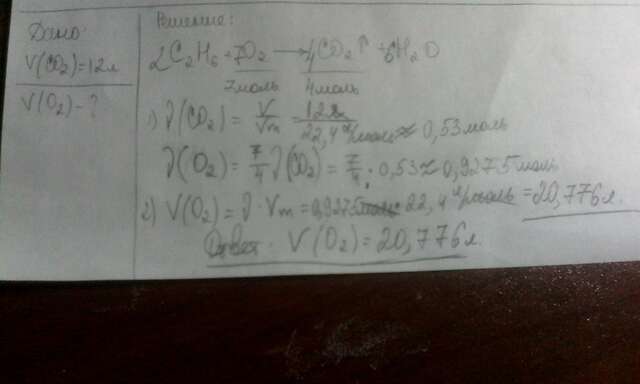 Дано:
V(CO₂)=12л
V(O₂)-?
Решение:
2C₂H₆+7O₂ → 4CO₂↑ +6H₂O
7моль 4моль
1) ν(CO₂) = V/Vm = 12л/22,4л/моль ≈ 0,53моль
ν(O₂) = 7/4 ν(CO₂) = 7/4 · 0,53 ≈ 0,9275моль
2) V(O₂) = ν · Vm = 0,9275моль · 22,4 л/моль = 20,776л.
Ответ: V(O₂) = 20,776л.